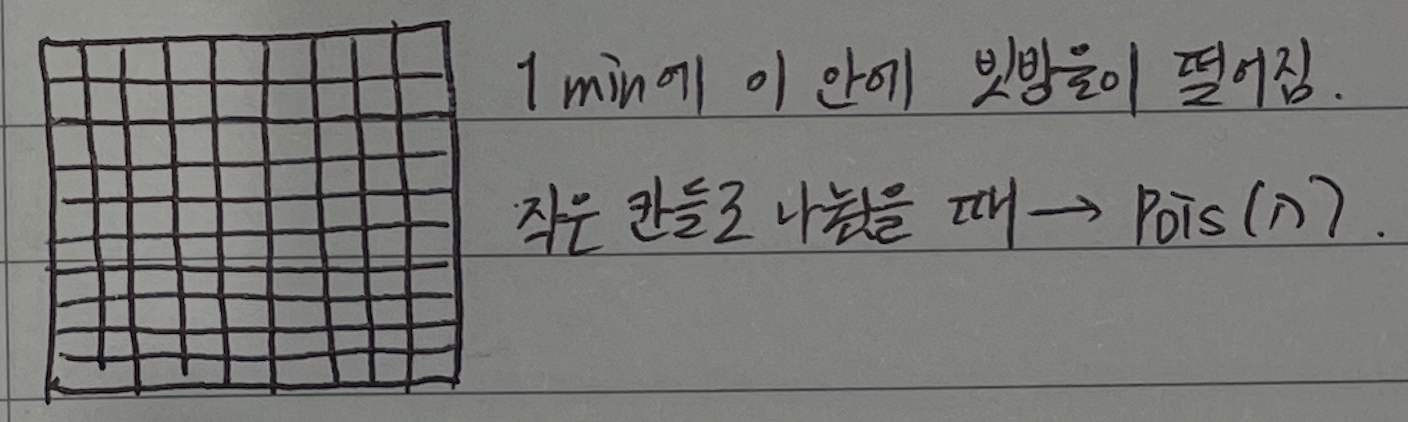 1 min에 이 안에 빗방울이 떨어짐.
작은 칸들로 나눴을 때 → Pois(λ).